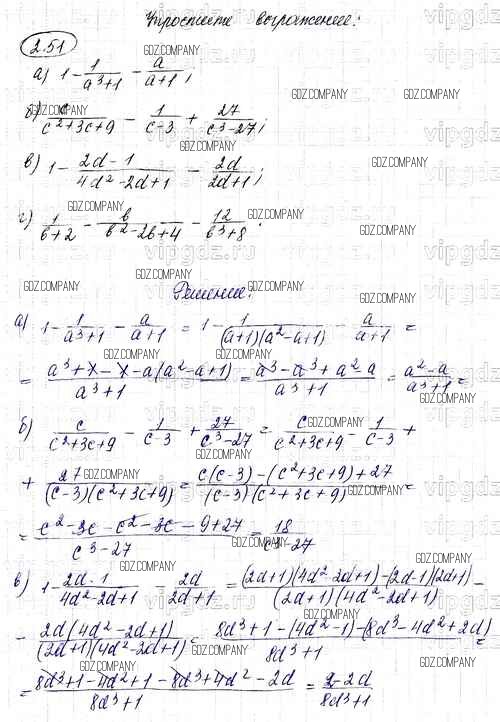 Упростите выражение:
2.51
а) 1 - 1/(a³+1) - a/(a+1);
б) c/(c²+3c+9) - 1/(c-3) + 27/(c³-27);
в) 1 - (2d-1)/(4d²-2d+1) - 2d/(2d+1);
г) 1/(b+2) - b/(b²-2b+4) - 12/(b³+8).
Решение:
а) 1 - 1/(a³+1) - a/(a+1) = 1 - 1/((a+1)(a²-a+1)) - a/(a+1) =
= (a³+1-1-a(a²-a+1))/(a³+1) = (a³-a³+a²-a)/(a³+1) = (a²-a)/(a³+1) =
б) c/(c²+3c+9) - 1/(c-3) + 27/(c³-27) = c/(c²+3c+9) - 1/(c-3) +
+ 27/((c-3)(c²+3c+9)) = (c(c-3)-(c²+3c+9)+27)/((c-3)(c²+3c+9)) =
= (c²-3c-c²-3c-9+27)/(c³-27) = 18/(c³-27)
в) 1 - (2d-1)/(4d²-2d+1) - 2d/(2d+1) = ((2d+1)(4d²-2d+1)-(2d-1)(2d+1))/((2d+1)(4d²-2d+1)) -
- 2d(4d²-2d+1)/((2d+1)(4d²-2d+1)) = (8d³+1-(4d²-1)-(8d³-4d²+2d))/(8d³+1) =
= (8d³+1-4d²+1-8d³+4d²-2d)/(8d³+1) = (2-2d)/(8d³+1)